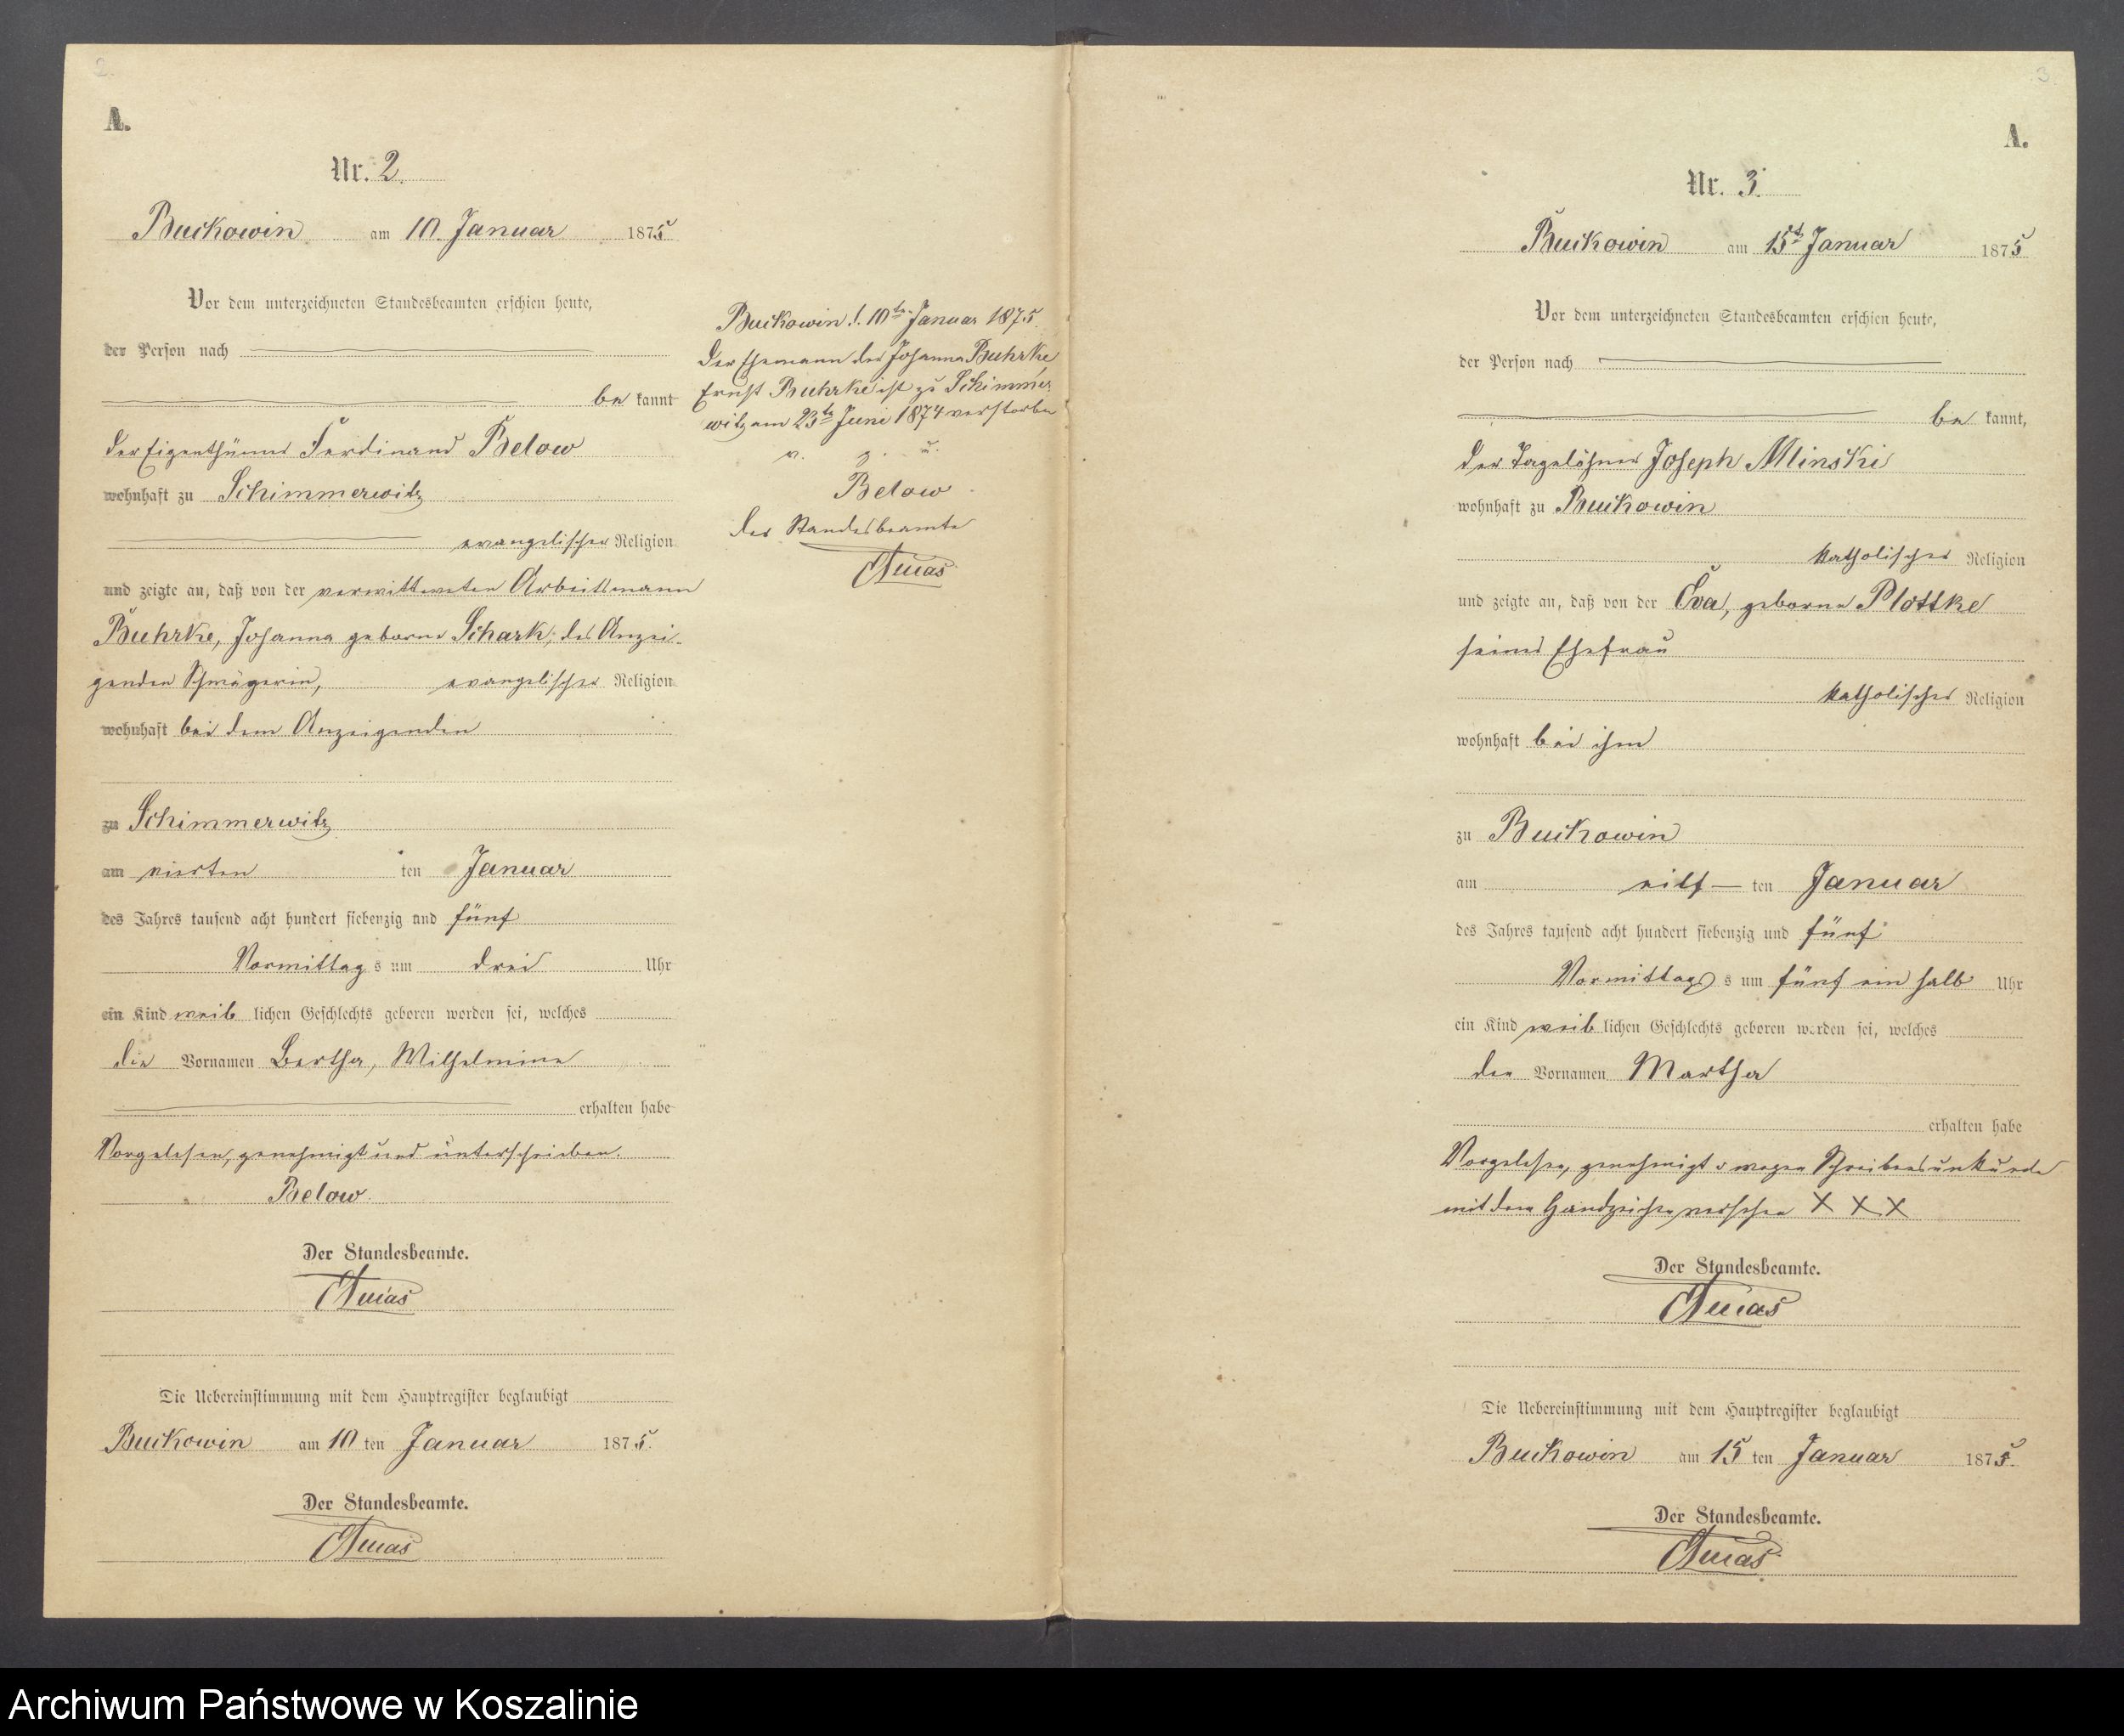 2.
A.
Nr. 2.
Buckowin am 10. Januar 1875
Vor dem unterzeichneten Standesbeamten erschien heute,
der Person nach
be kannt
der Eigenthümer Ferdinand Below
wohnhaft zu Schimmerwitz
evangelischer Religion
und zeigte an, daß von der verwittweten Arbeitsmann
Buhrke, Johanna geborne Schark, des Anzei-
genden Schwägerin, evangelischer Religion
wohnhaft bei dem Anzeigenden
zu Schimmerwitz
am vierten ten Januar
des Jahres tausend acht hundert siebenzig und fünf
Vormittag s um drei Uhr
ein Kind weib lichen Geschlechts geboren worden sei, welches
die Vornamen Bertha, Wilhelmine
erhalten habe
Vorgelesen, genehmigt und unterschrieben.
Below.
Der Standesbeamte.
Die Uebereinstimmung mit dem Hauptregister beglaubigt
Buckowin am 10 ten Januar 1875.
Der Standesbeamte.
Buckowin d. 10ten Januar 1875.
Der Ehemann der Johanna Buhrke
Ernst Buhrke ist zu Schimmer
witz am 23ten Juni 1874 verstorben
v. g. u.
Below
Der Standesbeamte
3.
A.
Nr. 3.
Buckowin am 15t Januar 1875
Vor dem unterzeichneten Standesbeamten erschien heute,
der Person nach
be kannt,
der Tagelöhner Joseph Mlinski
wohnhaft zu Buckowin
katholischer Religion
und zeigte an, daß von der Eva, geborne Plottke
seiner Ehefrau
katholischer Religion
wohnhaft bei ihm
zu Buckowin
am eilf – ten Januar
des Jahres tausend acht hundert siebenzig und fünf
Vormittags s um fünf ein halb Uhr
ein Kind weib lichen Geschlechts geboren worden sei, welches
den Vornamen Martha
erhalten habe
Vorgelesen, genehmigt u wegen Schreibensunkunde
mit dem Handzeichen versehen X X X
Der Standesbeamte.
Die Uebereinstimmung mit dem Hauptregister beglaubigt
Buckowin am 15 ten Januar 1875.
Der Standesbeamte.
Archiwum Państwowe w Koszalinie